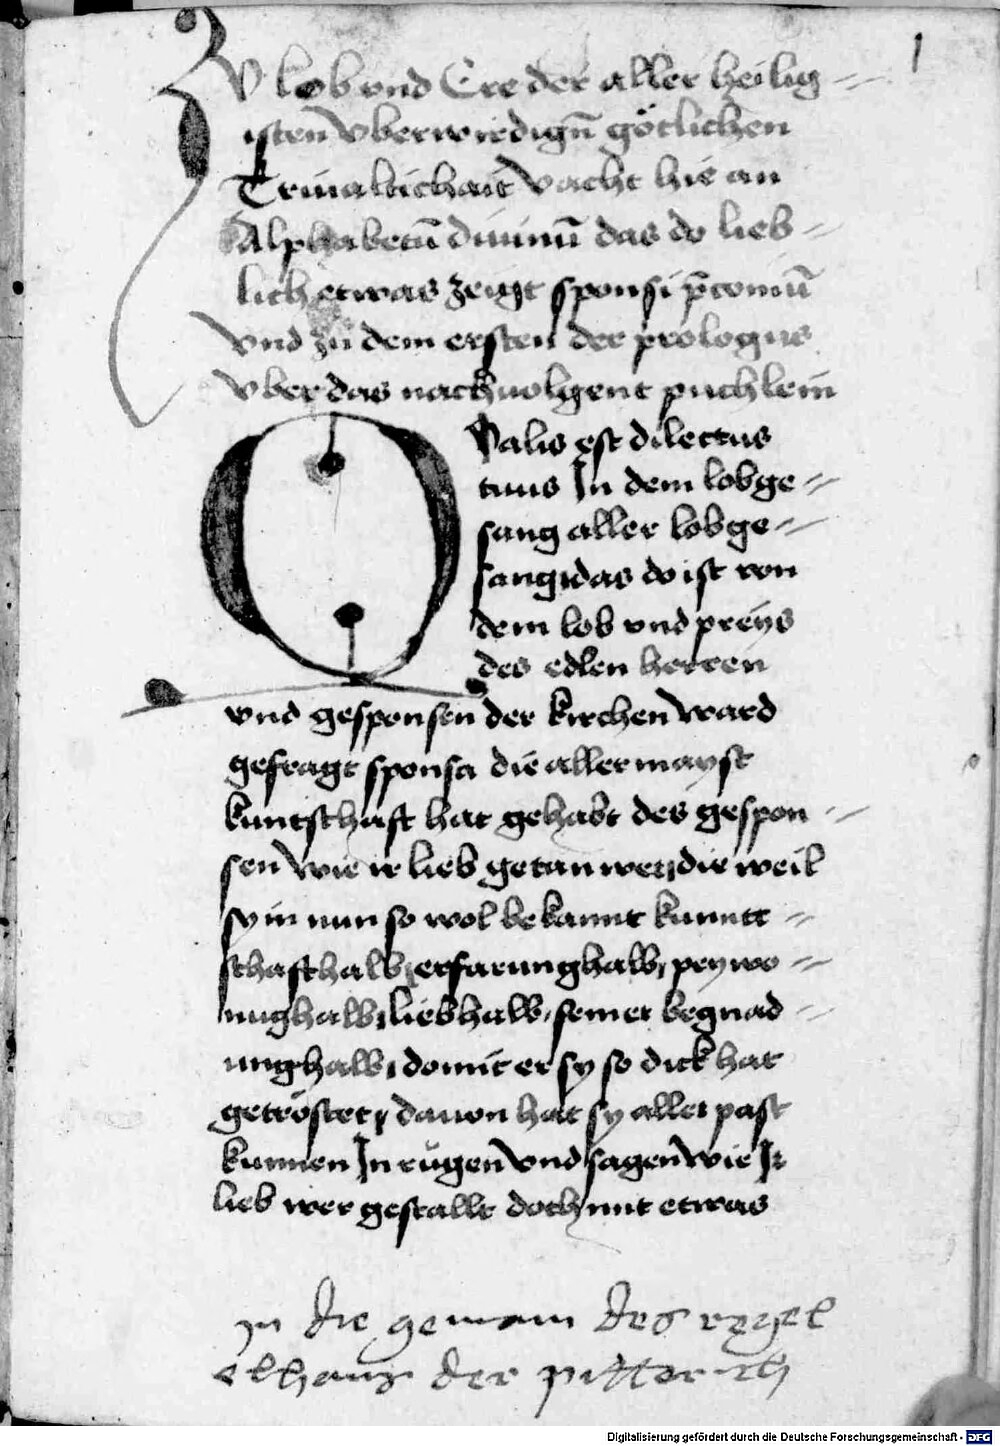 1
ZV lob vnd Ere der aller heilig
isten vberwirdigñ götlichen
Triualtichait vacht hie an
Alphabetū diuinū das do lieb
lich etwas zeigt sponsi p̄coniū
vnd zů dem ersten der prologus
vber das nachuolgent puchlein
Qvalis est dilectus
tuus In dem lobge
sang aller lobge
sang das do ist von
dem lob vnd preys
des edlen herren
vnd gesponsen der kirchen ward
gefragt sponsa die allermayst
kuntschaft hat gehabt des gespon
sen wie ir lieb getan wer die weil
sy in nun so wol bekannt kunntt
schafthalb erfarunghalb peywo
nughalb liebhalb seiner begnad
unghalb domit er sy so dick hat
getröstet dauon hat sy aller past
kunnen In rügen vnd sagen wie Ir
lieb wer gestallt doch mit etwas
jn die gemain des regel
elhaus der pitterich
Digitalisierung gefördert durch die Deutsche Forschungsgemeinschaft - DFG